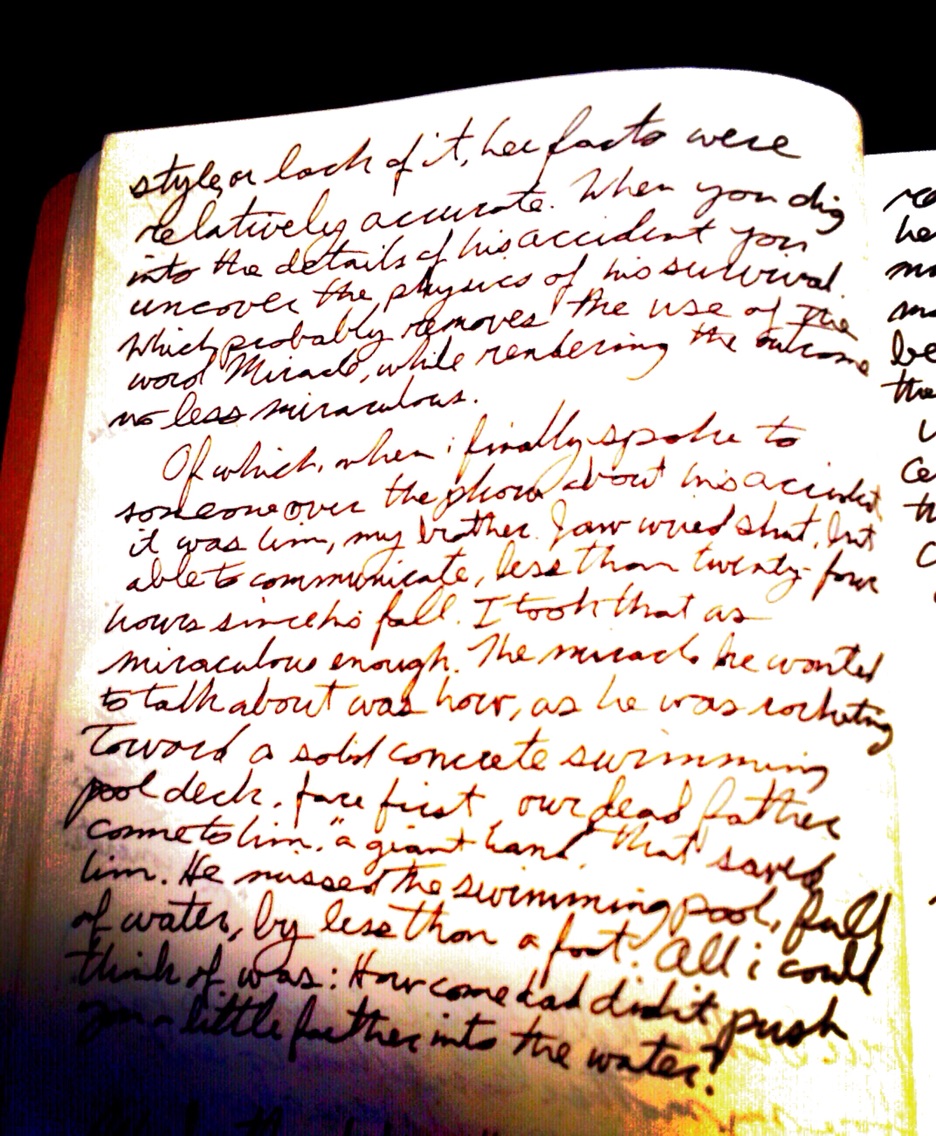 style, or lack of it, her facts were
relatively accurate. When you dig
into the details of his accident you
uncover the physics of his survival.
Which probably removes the use of the
word Miracle, while rendering the outcome
no less miraculous.
Of which, when i finally spoke to
someone over the phone about his accident
it was him, my brother. Jaw wired shut, but
able to communicate, less than twenty-four
hours since his fall. I took that as
miraculous enough. The miracle he wanted
to talk about was how, as he was rocketing
Toward a solid concrete swimming
pool deck, face first, our dead father
come to him, "a giant hand," that saved
him. He missed the swimming pool, full
of water, by less than a foot. All i could
think of was: How come dad didn't push
you a little farther into the water?